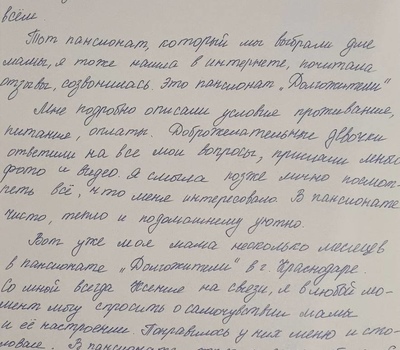 всем.
Тот пансионат, который мы выбрали для
мамы, я тоже нашла в интернете, почитала
отзывы, созвонилась. Это пансионат „Долгожители"
Мне подробно описали условия проживания,
питания, оплаты. Доброжелательные девочки
ответили на все мои вопросы, прислали много
фото и видео. Я смогла позже лично посмот-
реть всё, что меня интересовало. В пансионате
чисто, тепло и по домашнему уютно.
Вот уже моя мама несколько месяцев
в пансионате „Долгожители" в г. Краснодаре.
Со мной всегда Ксения на связи, я в любой мо-
мент могу спросить о самочувствии мамы
и её настроении. Понравилось у них меню и сто-
ловая. В пансионате